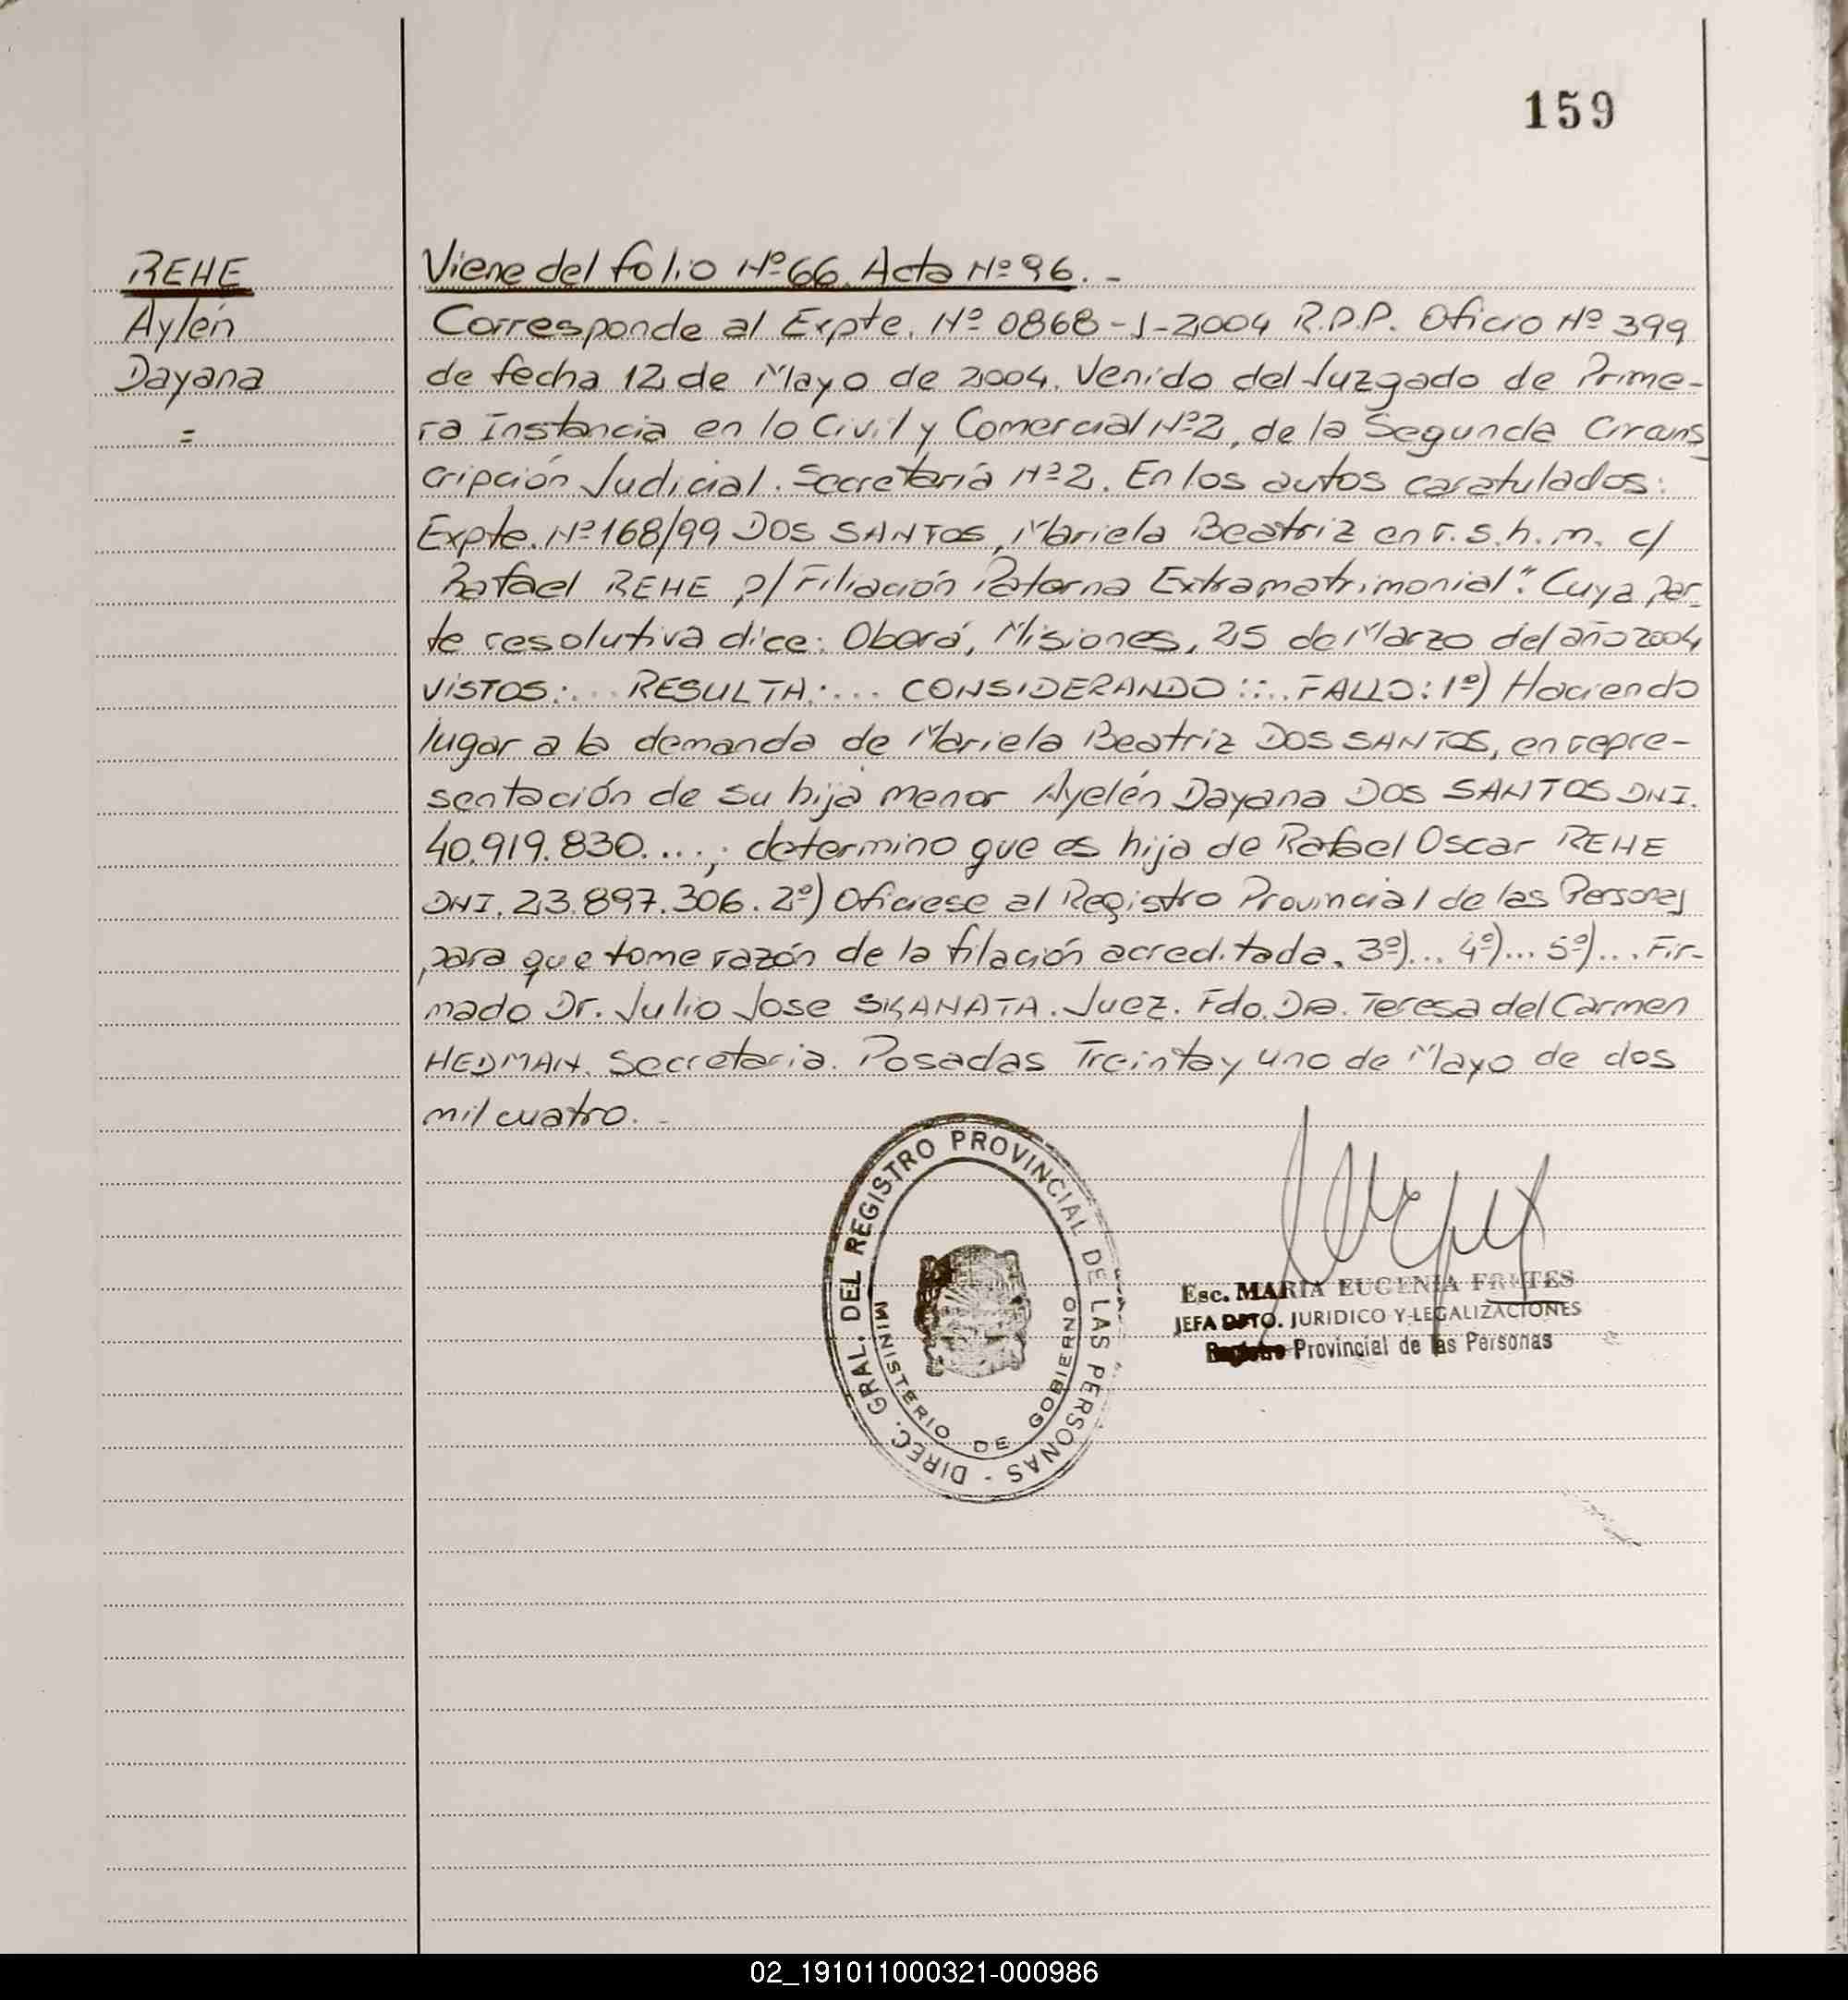 159
REHE
Aylén
Dayana
=
Viene del folio Nº 66. Acta Nº 96. -
Corresponde al Expte. Nº 0868-J-2004 R.P.P. Oficio Nº 399
de fecha 12 de Mayo de 2004. Venido del Juzgado de Prime-
ra Instancia en lo Civil y Comercial Nº 2, de la Segunda Circuns
cripción Judicial. Secretaría Nº 2. En los autos caratulados:
Expte. Nº 168/99 DOS SANTOS, Mariela Beatriz en r.s.h.m. c/
Rafael REHE p/ Filiación Paterna Extramatrimonial". Cuya par-
te resolutiva dice: Oberá, Misiones, 25 de Marzo del año 2004
VISTOS:... RESULTA:... CONSIDERANDO:... FALLO: 1º) Haciendo
lugar a la demanda de Mariela Beatriz DOS SANTOS, en repre-
sentación de su hija menor Ayelén Dayana DOS SANTOS DNI.
40.919.830....; determino que es hija de Rafael Oscar REHE
DNI. 23.897.306. 2º) Ofíciese al Registro Provincial de las Personas
para que tome razón de la filación acreditada. 3º)... 4º)... 5º)... Fir-
mado Dr. Julio Jose SKANATA. Juez. Fdo. Dra. Teresa del Carmen
HEDMAN. Secretaria. Posadas Treinta y uno de Mayo de dos
mil cuatro. -
DIREC. GRAL. DEL REGISTRO PROVINCIAL DE LAS PERSONAS -
MINISTERIO DE GOBIERNO
Esc. MARIA EUGENIA FRETES
JEFA DPTO. JURIDICO Y LEGALIZACIONES
Registro Provincial de las Personas
02_191011000321-000986